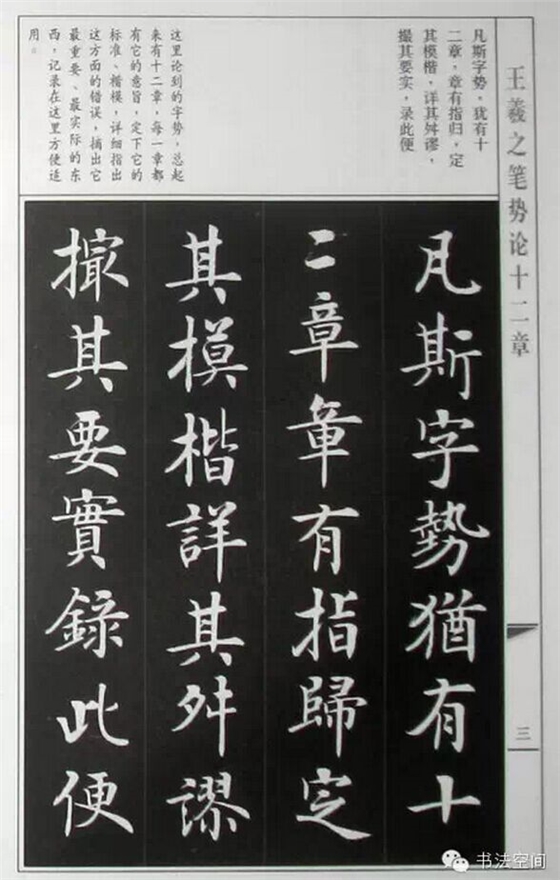 王羲之笔势论十二章
凡斯字势，犹有十
二章，章有指归，定
其模楷，详其舛谬，
撮其要实，录此便
这里论到的字势，总起
来有十二章，每一章都
有它的意旨，定下它的
标准、楷模，详细指出
这方面的错误，摘出它
最重要、最实际的东
西，记录在这里方便适
用。
凡斯字勢猶有十
二章章有指歸定
其模楷詳其舛謬
撮其要實錄此便
三
书法空间